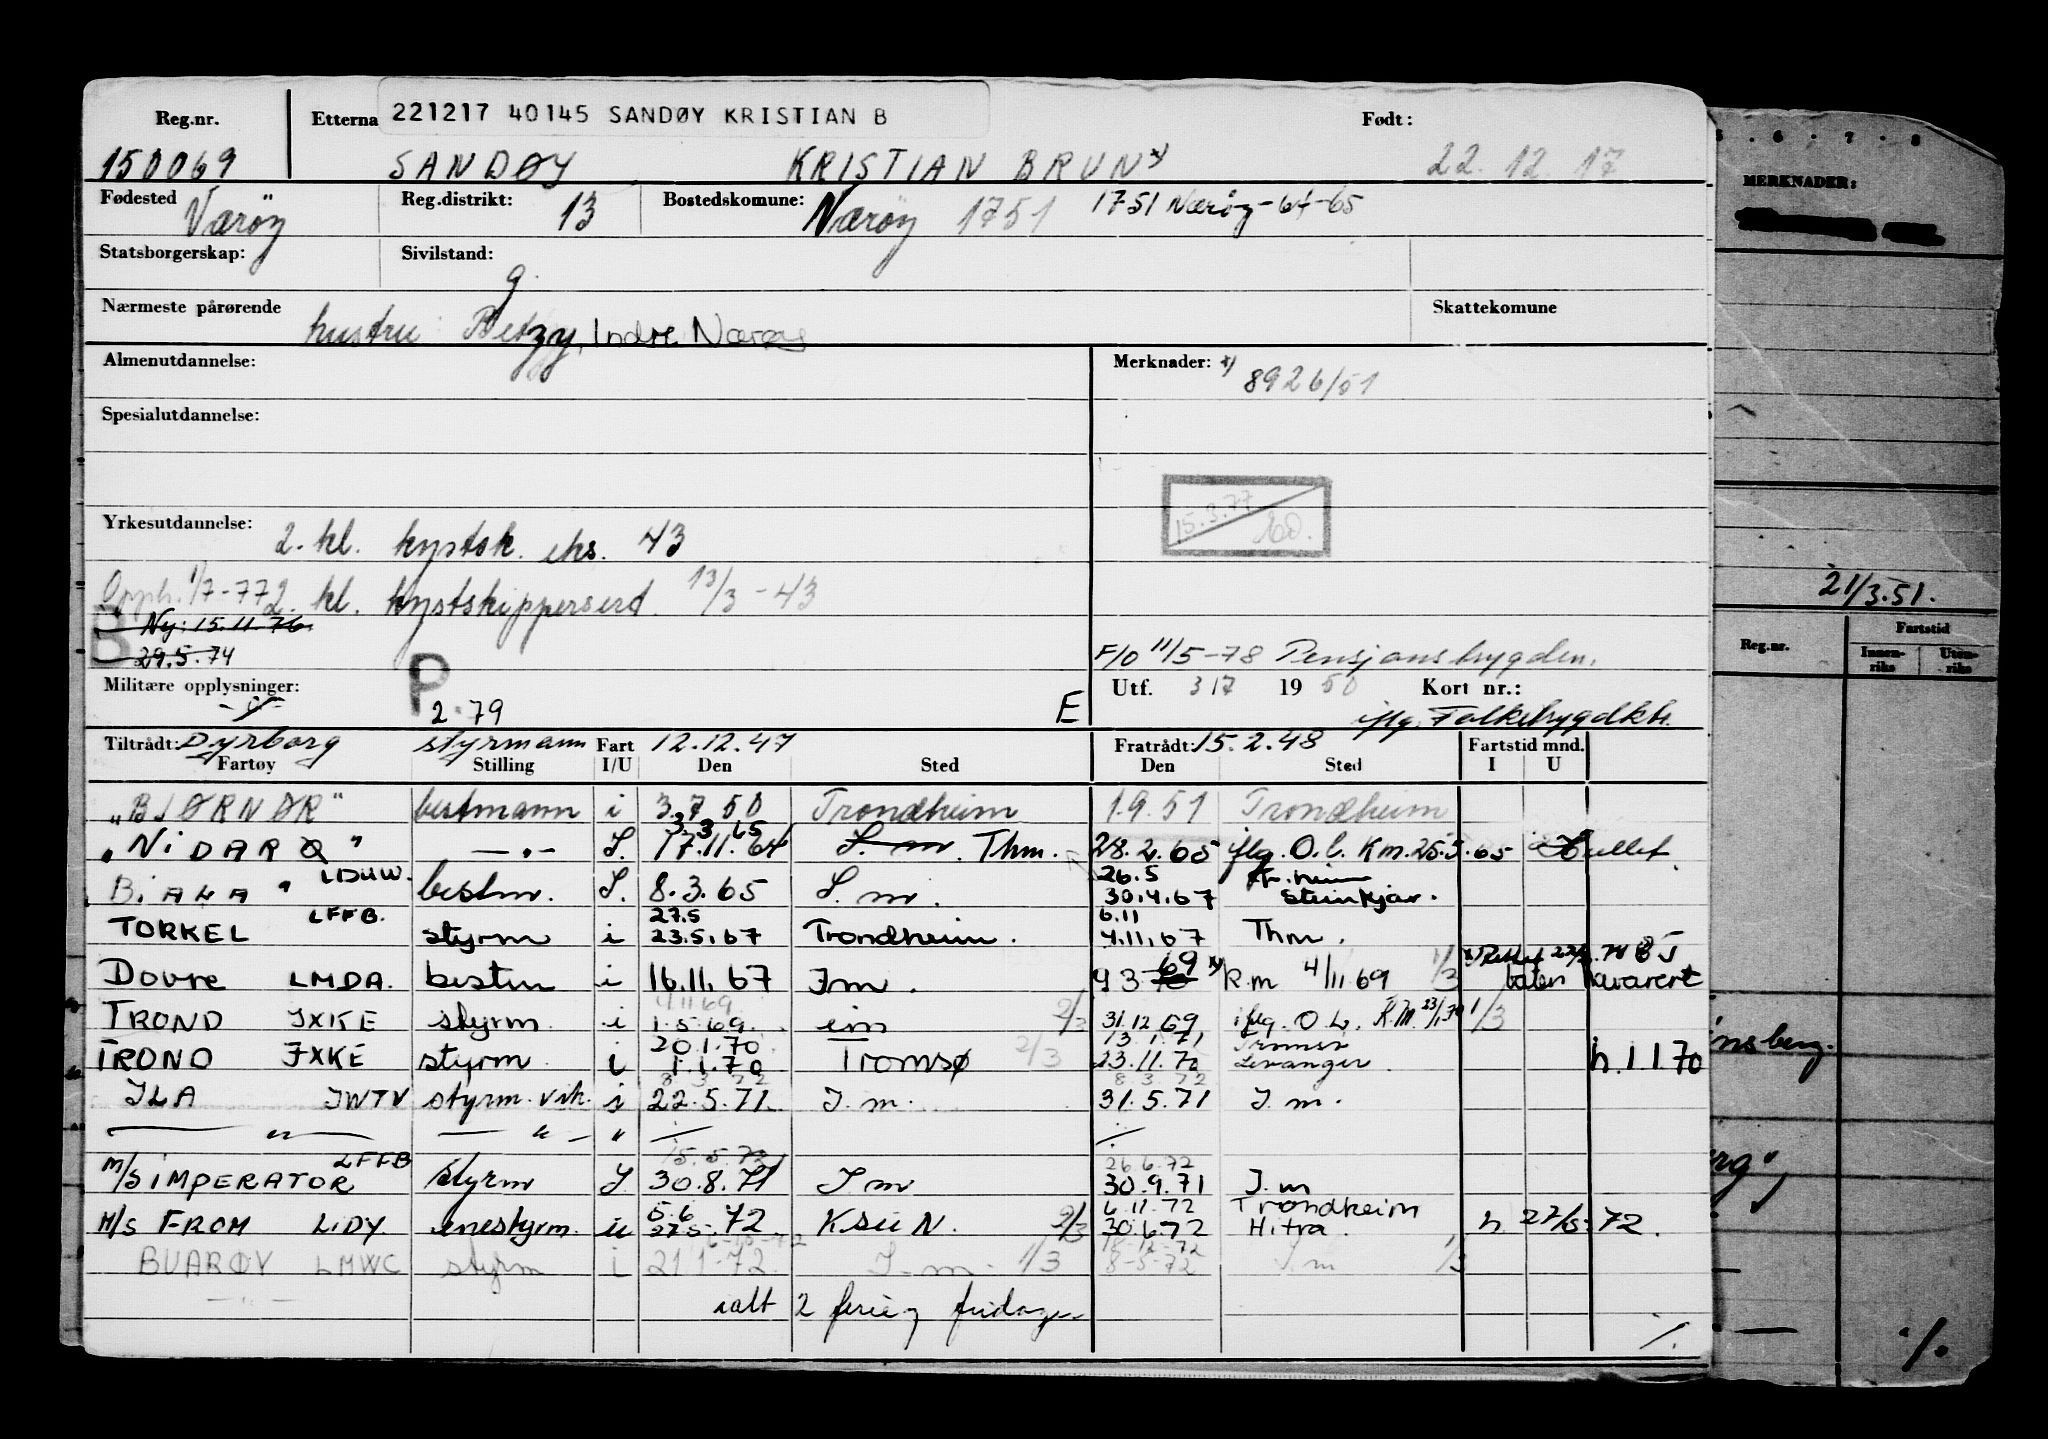 Reg.nr. Etterna 221217 40145 SANDØY KRISTIAN B Født:
150069 SANDØY KRISTIAN BRUN x) 22.12.17
Fødested Værøy Reg.distrikt: 13 Bostedskomune: Nærøy 1751 1751 Nærøy-64-65
Statsborgerskap: Sivilstand: g.
Nærmeste pårørende hustru Betzy, Indre Nærøy Skattekomune
Almenutdannelse: Merknader: x) 8926/51
Spesialutdannelse:
15.3.77
Yrkesutdannelse: 2. kl. kystsk. eks. 43
Opph. 1/7-77 2. kl. kystskippersert. 13/3-43
B Ny: 15.11.76
29.5.74 F/O 11/5-78 Pensjonsbygden.
Militære opplysninger: P 2.79 E Utf. 3/7 1950 Kort nr.:
iflg. Folkebygdktr.
Tiltrådt: Dyrborg styrmann Fart 12.12.47 Fratrådt: 15.2.48 Fartstid mnd.
Fartøy Stilling I/U Den Sted Den Sted I U
"BJØRNØR" bestmann i 3.7.50 Trondheim 1.9.51 Trondheim
3.3.65
"NIDARØ" —"— I. 17.11.64 I.m. Thm. 28.2.65 iflg. O.l. Km. 25.5.65
BIANA" LDUW. bestm. I. 8.3.65 I.m. 26.5 30.4.67 Tr.heim Steinkjær.
TORKEL LFFB. styrm i 27.5 23.5.67 Trondheim. 6.11 4.11.67 Thm.
DOVRE LMDA. bestm i 16.11.67 I.m. 4.3 69 x) R.m 4/11 69 1/3 båten havarert
4.11.69
TROND JXKE styrm. i 1.5.69. im 2/3 31.12 69 iflg. O.L. R.M. 23/1 70 1/3
20.1.70 13.1.71 Tromsø
TROND JXKE styrm. i 1.1.70 Tromsø 2/3 23.11.70 Levanger. h. 1.1.70
8.3.72 8.3.72
ILA JWTV styrm. vik. i 22.5.71. I.m. 31.5.71 I.m.
—"— —"— "
15.5.72 26.6.72
M/S IMPERATOR LFFB styrm I. 30.8.71 I.m 30.9.71 I.m
5.6 6.11.72 Trondheim
M/S FROM LIDY. enestyrm. u 27.5. 72 K SUN. 2/3 30.6.72 Hitra. h 27/5-72.
18-12-72
BUARØY LMWC styrm i 21.1-72. I.m. 1/3 8-5-72 I.m 1/3
ialt 2 ferie og fridager
./.
5 . 6 . 7 . 8
MERKNADER:
21/3.51.
Reg.nr. Fartstid
Innenriks Utenriks
./.